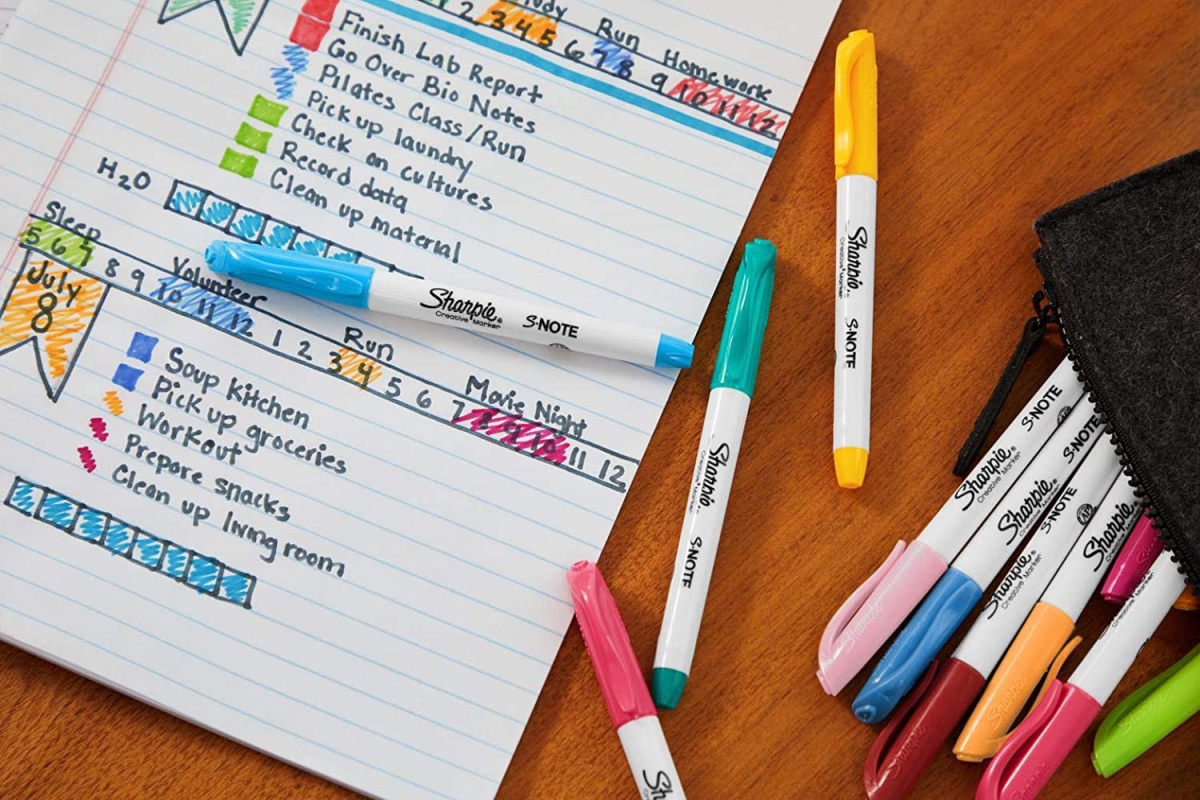 2 3 4 5 6 7 8 9 10 11 12
Run
Homework
Finish Lab Report
Go Over Bio Notes
Pilates Class/Run
Pick up laundry
Check on cultures
Record data
Clean up material
H2O
Sleep
Volunteer
Run
Movie Night
5 6 7 8 9 10 11 12 1 2 3 4 5 6 7 8 9 10 11 12
July
8
Soup Kitchen
Pick up groceries
Workout
Prepare snacks
Clean up living room
Sharpie
Creative Marker
S·NOTE
Sharpie
Creative Marker
S·NOTE
Sharpie
Creative Marker
S·NOTE
Sharpie
Creative Marker
S·NOTE
Sharpie
Creative Marker
S·NOTE
Sharpie
Creative Marker
S·NOTE
Sharpie
Creative Marker
Sharpie